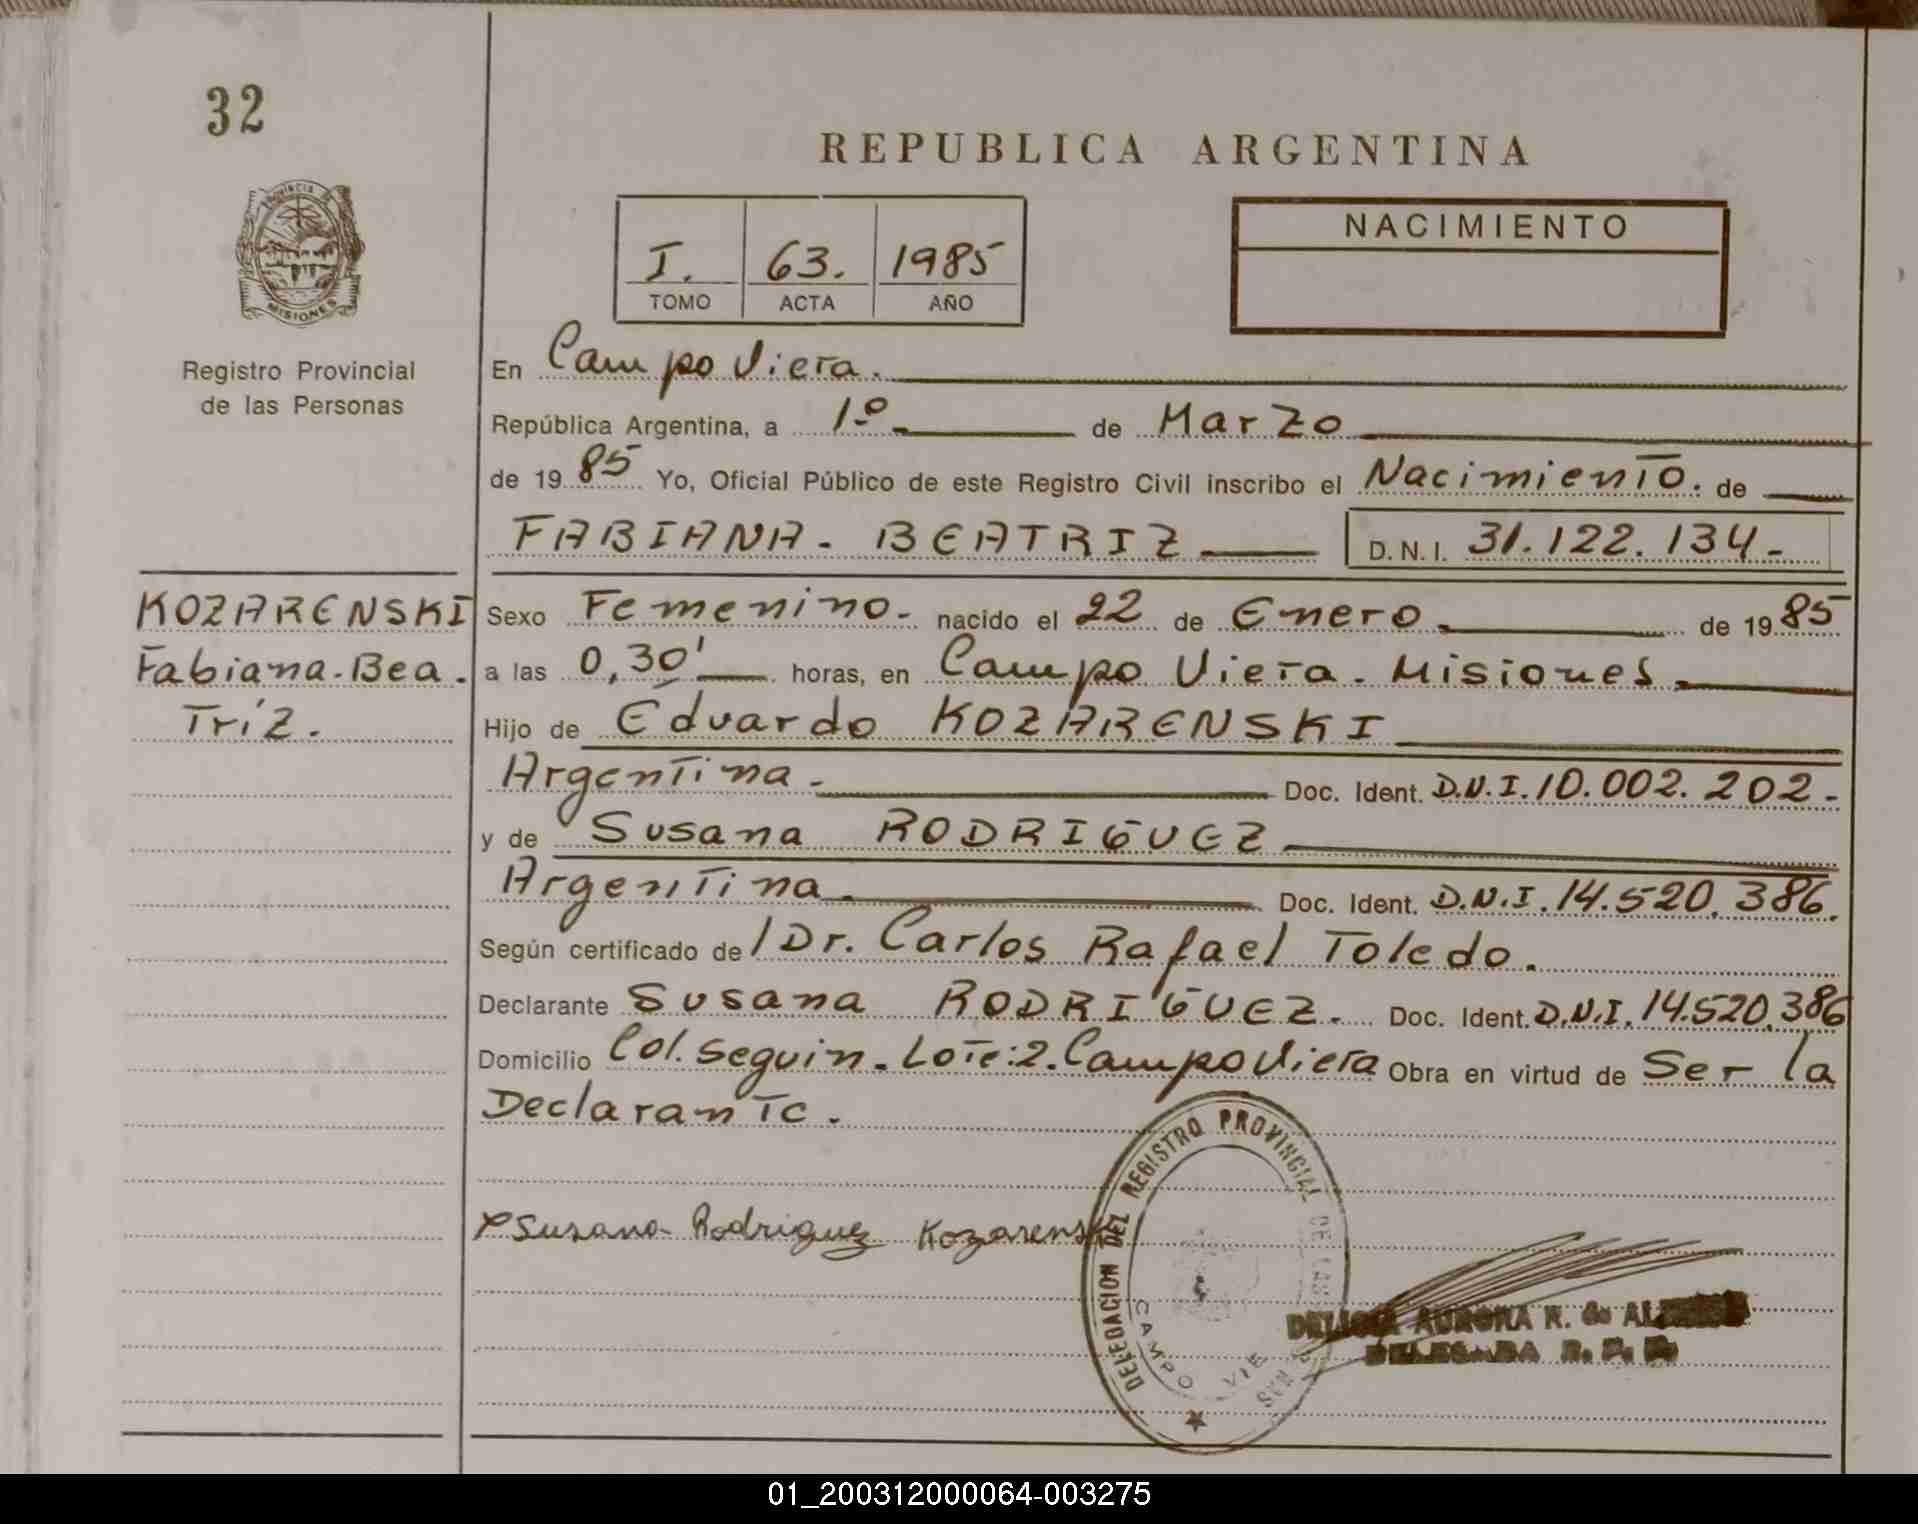 32
REPUBLICA ARGENTINA
PROVINCIA DE
MISIONES
Registro Provincial
de las Personas
I. 63. 1985
TOMO ACTA AÑO
NACIMIENTO
En Campo Viera.
República Argentina, a 1º de Marzo
de 1985 Yo, Oficial Público de este Registro Civil inscribo el Nacimiento. de
FABIANA - BEATRIZ D.N.I. 31.122.134-
KOZARENSKI
Fabiana-Bea.
Tríz.
Sexo Femenino- nacido el 22 de Enero. de 1985
a las 0,30' horas, en Campo Viera. Misiones.
Hijo de Eduardo KOZARENSKI
Argentina. Doc. Ident. D.N.I. 10.002.202-
y de Susana RODRIGUEZ
Argentina. Doc. Ident. D.N.I. 14.520.386.
Según certificado de / Dr. Carlos Rafael Toledo.
Declarante Susana RODRIGUEZ. Doc. Ident. D.N.I. 14.520.386
Domicilio Col. Seguin. Lote: 2. Campo Viera Obra en virtud de Ser la
Declarante.
Susana Rodriguez Kozarenski
DELEGACION DEL REGISTRO PROVINCIAL DE LAS
CAMPO VIE
AURORA R. de
01_200312000064-003275